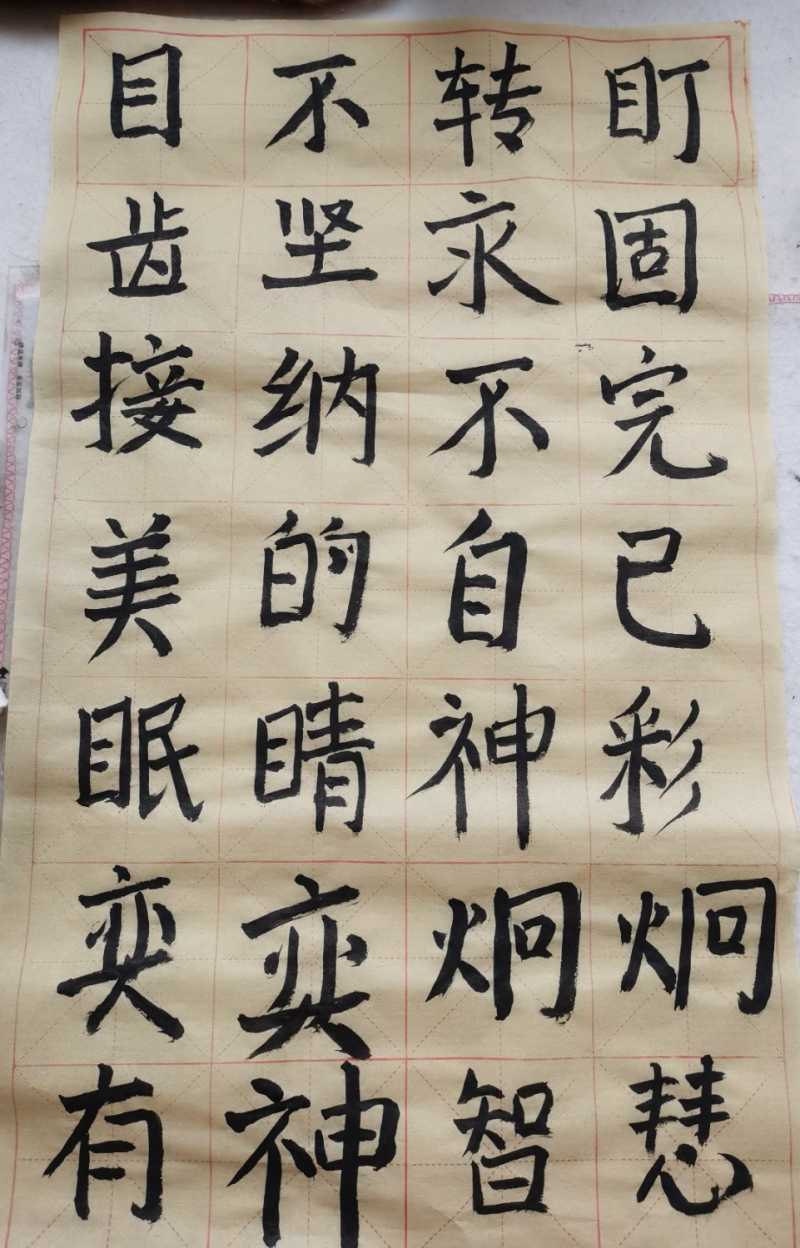 目不转盯
齿坚永固
接纳不完
美的自己
眠睛神彩
奕奕炯炯
有神智慧